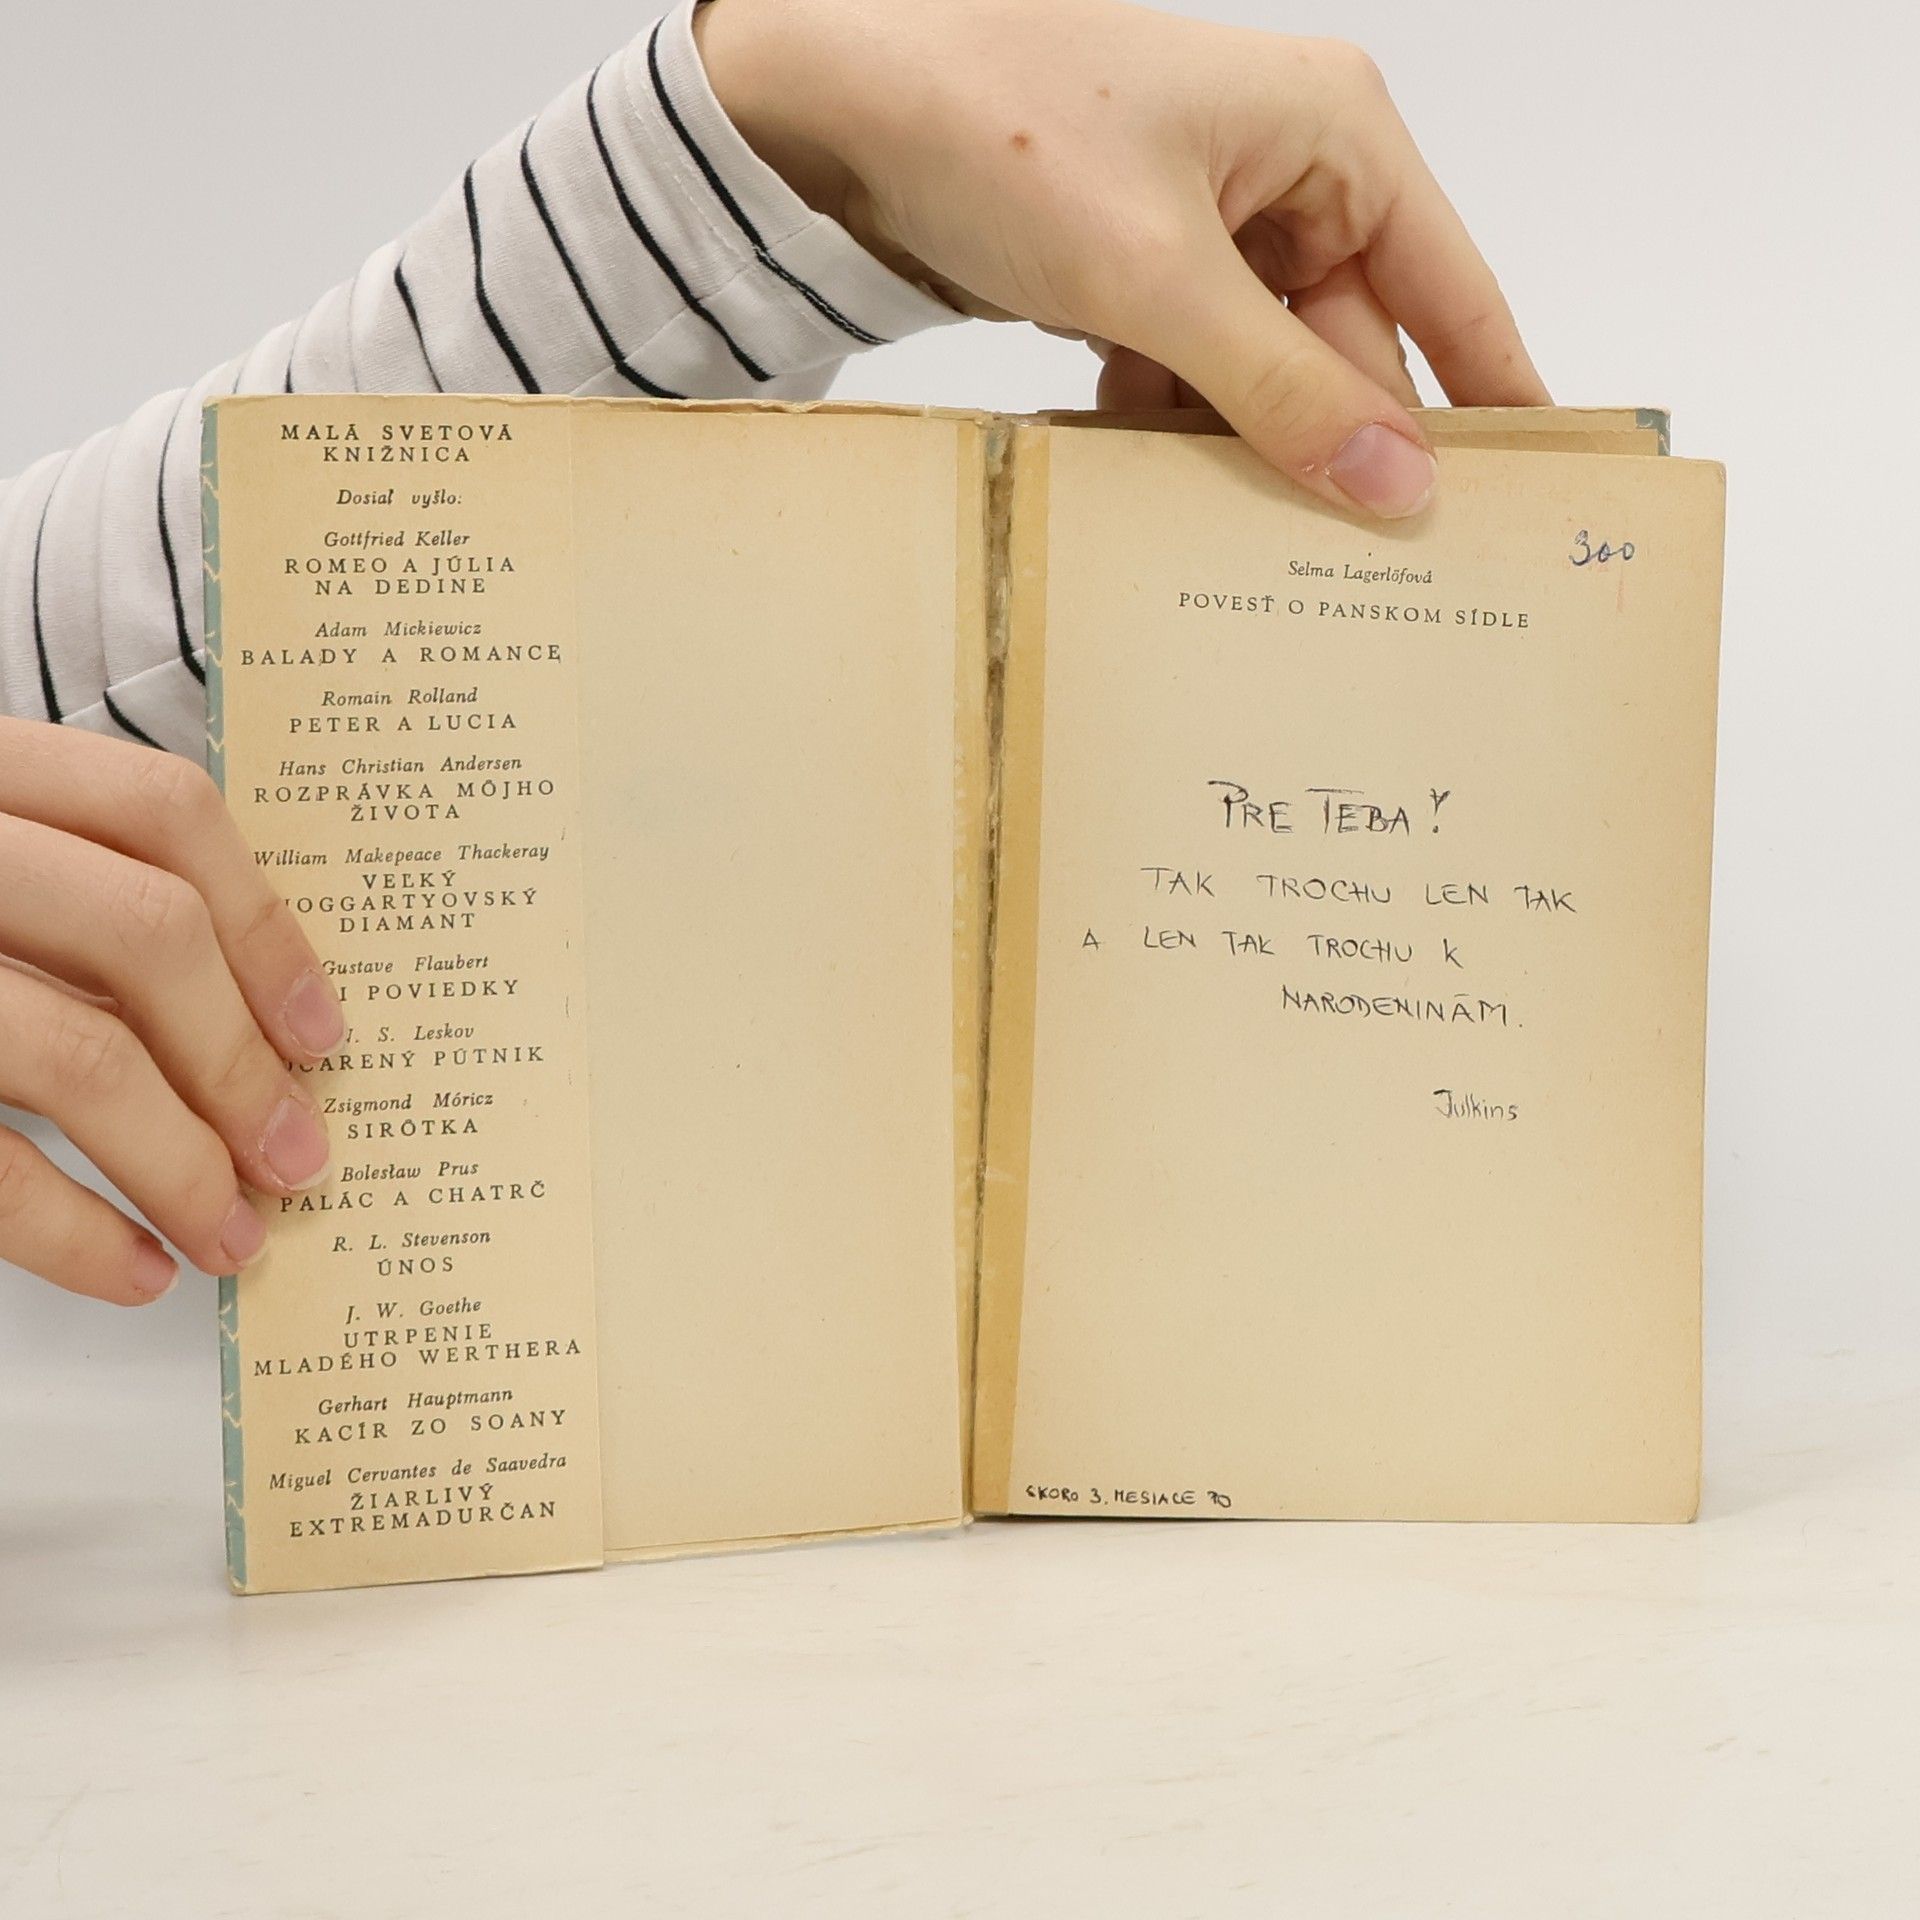 MALÁ SVETOVÁ
KNIŽNICA
Dosiaľ vyšlo:
Gottfried Keller
ROMEO A JÚLIA
NA DEDINE
Adam Mickiewicz
BALADY A ROMANCE
Romain Rolland
PETER A LUCIA
Hans Christian Andersen
ROZPRÁVKA MÔJHO
ŽIVOTA
William Makepeace Thackeray
VEĽKÝ
OGGARTYOVSKÝ
DIAMANT
Gustave Flaubert
I POVIEDKY
N. S. Leskov
OČARENÝ PÚTNIK
Zsigmond Móricz
SIRÔTKA
Bolesław Prus
PALÁC A CHATRČ
R. L. Stevenson
ÚNOS
J. W. Goethe
UTRPENIE
MLADÉHO WERTHERA
Gerhart Hauptmann
KACÍR ZO SOANY
Miguel Cervantes de Saavedra
ŽIARLIVÝ
EXTREMADURČAN
300
Selma Lagerlöfová
POVESŤ O PANSKOM SÍDLE
PRE TEBA!
TAK TROCHU LEN TAK
A LEN TAK TROCHU K
NARODENINÁM.
Julkins
SKORO 3. MESIACE 70